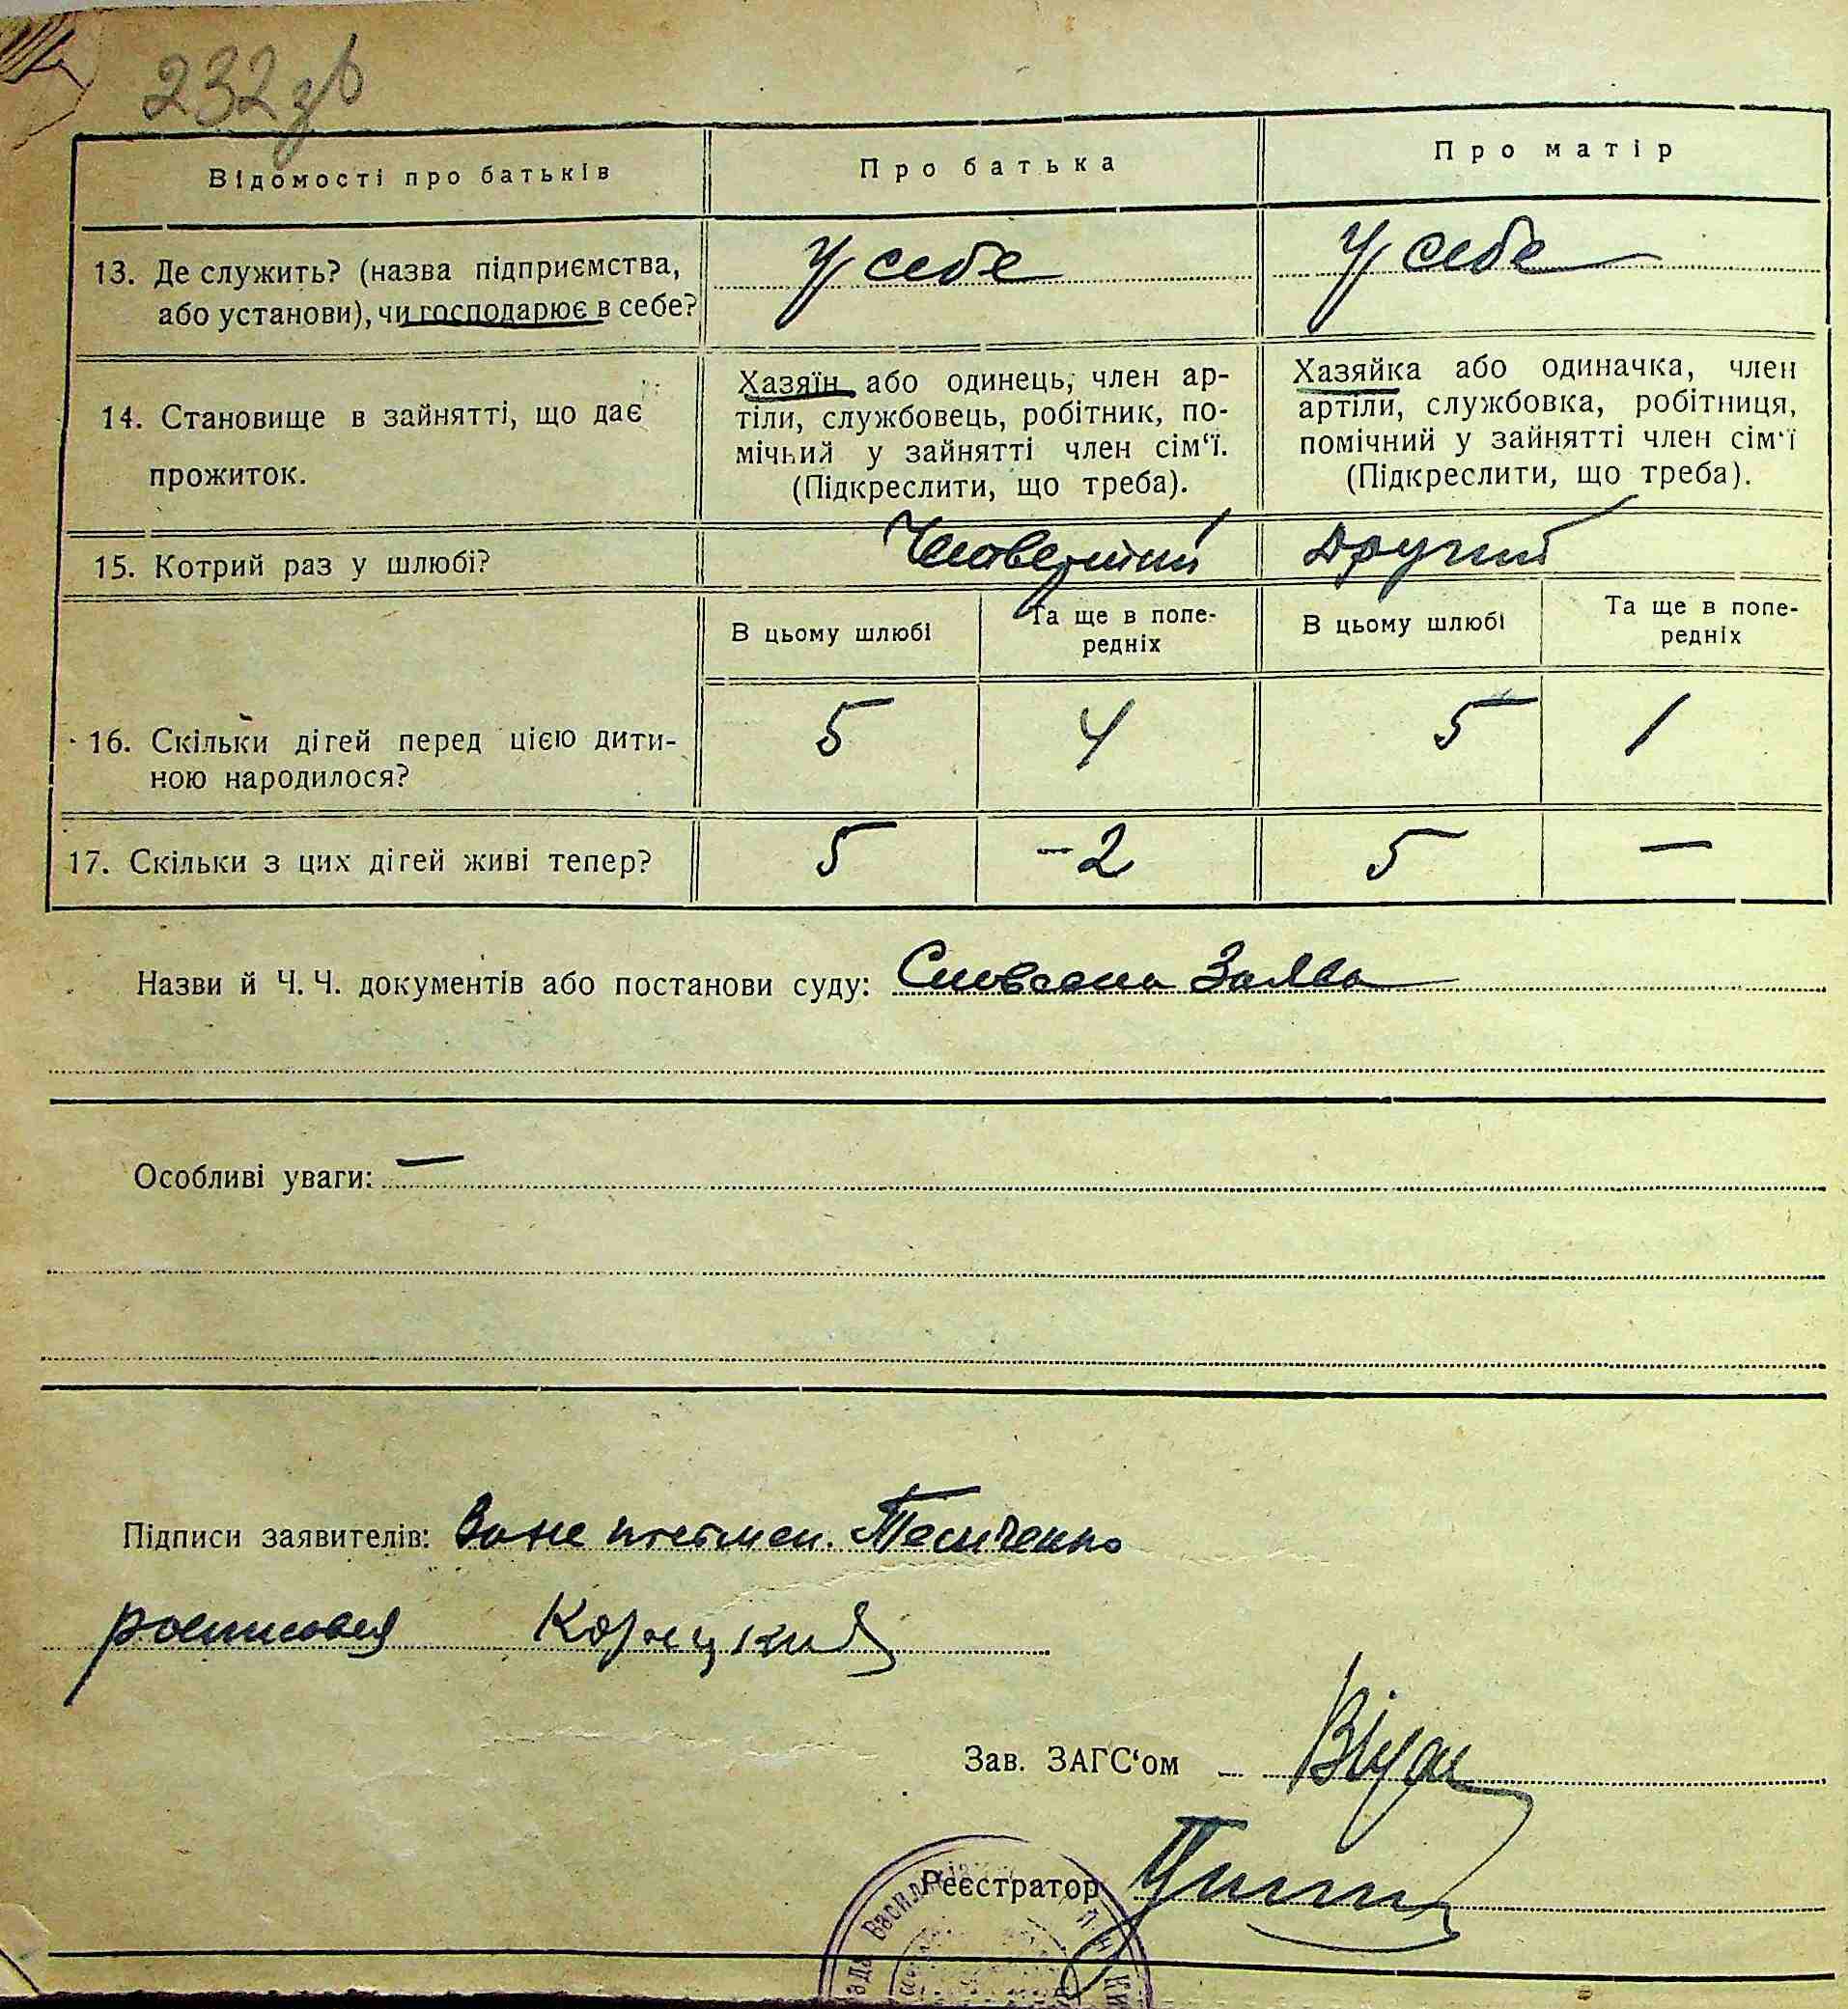 232 зв
Відомості про батьків
Про батька
Про матір
13. Де служить? (назва підприємства,
або установи), чи господарює в себе?
У себе
У себе
14. Становище в зайнятті, що дає
прожиток.
Хазяїн або одинець, член ар-
тіли, службовець, робітник, по-
мічний у зайнятті член сім‘ї.
(Підкреслити, що треба).
Хазяйка або одиначка, член
артіли, службовка, робітниця,
помічний у зайнятті член сім‘ї
(Підкреслити, що треба).
15. Котрий раз у шлюбі?
Четвертий
Другий
В цьому шлюбі
Та ще в попе-
редніх
В цьому шлюбі
Та ще в попе-
редніх
16. Скільки дітей перед цією дити-
ною народилося?
5
4
5
1
17. Скільки з цих дітей живі тепер?
5
- 2
5
—
Назви й Ч. Ч. документів або постанови суду: Словесна Заява
Особливі уваги: —
Підписи заявителів:
Зав. ЗАГС‘ом
Реєстратор